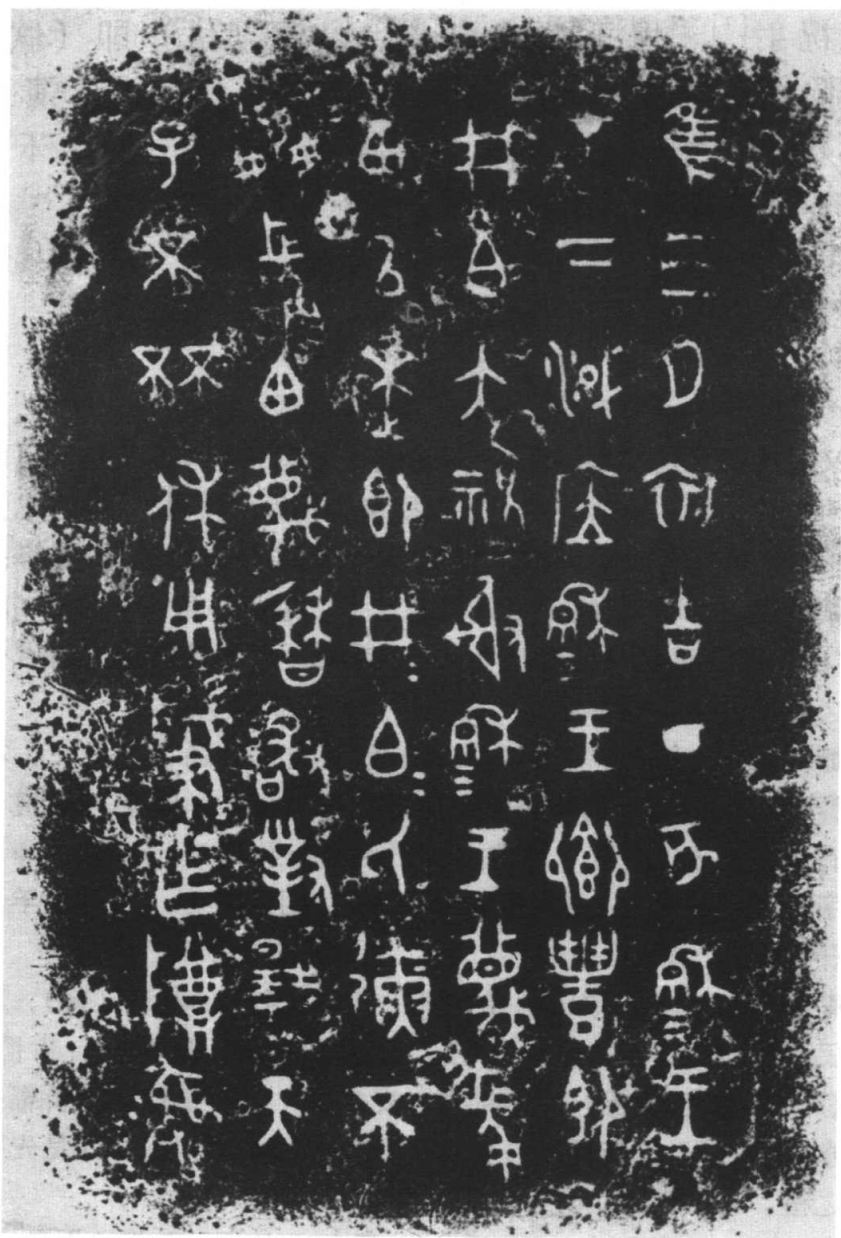 隹三月初吉丁亥穆王
才下淢应穆王卿豊即
井白大祝射穆王蔑長
甶以逨即井=白=氏彌不
姦長甶蔑曆敢對揚天
子不杯休用肇乍尊彝